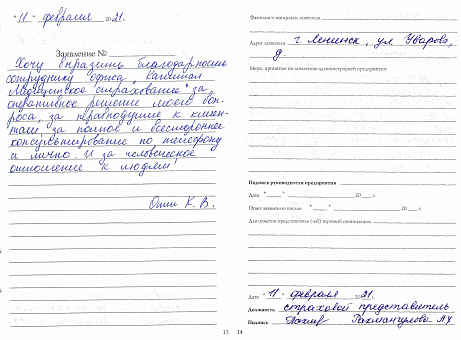 "11" февраля 2021 г.
Заявление №
Хочу выразить благодарность
сотруднику офиса, Капитал
Медицинское страхование" за
оперативное решение моего воп-
роса, за неравнодушие к клиен-
там, за полное и всестороннее
консультирование по телефону
и лично. И за человеческое
отношение к людям!
К. В.
13
Фамилия и инициалы заявителя
Адрес заявителя г. Ленинск, ул Уварова,
д.
Меры, принятые по заявлению администрацией предприятия:
Подпись руководителя предприятия
Дата " " 20 г.
Ответ заявителю послан " " 20 г.
Для отметок представителя (-ей) торговой организации
Дата "11" февраля 2021 г.
Должность страховой представитель
Подпись Рахманкулова АХ
14